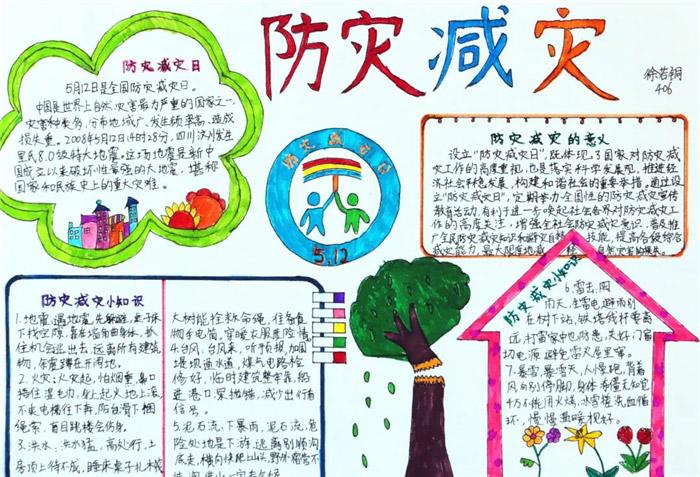 防灾减灾
徐若铜
406
防灾减灾日
5月12日是全国防灾减灾日。
中国是世界上自然灾害最为严重的国家之一,
灾害种类多,分布地域广,发生频率高,造成
损失重。2008年5月12日14时28分,四川汶川发生
里氏8.0级特大地震。这场地震是新中
国成立以来破坏性最强的大地震,堪称
国家和民族史上的重大灾难。
防灾减灾日
5.12
防灾减灾的意义
设立"防灾减灾日",既体现了国家对防灾减灾
工作的高度重视,也是落实科学发展观,推进经
济社会和谐发展,构建和谐社会的重要举措。通过设
立"防灾减灾日",定期举办全国性的防灾减灾宣传
教育活动,有利于进一步唤起社会各界对防灾减灾工
作的高度关注,增强全社会防灾减灾意识,普及推
广全民防灾减灾知识和避灾自救技能,提高各级综合
减灾能力,最大限度地减 自然灾害的损失。
防灾减灾小知识
1.地震:遇地震,先躲避,桌子床
下找空隙,靠在墙角曲身体,抓
住机会逃出去,远离所有建筑
物,余震蹲在开阔地。
2.火灾:火灾起,怕烟重,鼻口
捂住湿毛巾,身上起火地上滚,
不乘电梯往下奔,阳台滑下捆
绳索,盲目跳楼会伤身。
3.洪水:洪水猛,高处行,土
房顶上待不成,睡床桌子扎木筏
大树能拴救命绳,住备食
物手电筒,穿暖衣服度险情。
4.台风:台风来,听预报,加固
堤坝通水道,煤气电路检
修好,临时建筑整牢靠,船
进港口深抛锚,减少出行看
信号。
5.泥石流:下暴雨,泥石流,危
险处地是下游,逃离别顺沟
底走,横向快爬上山头,野外宿营不
防灾减灾小知识
6.雷击:阴
雨天,生雷电,避雨别
在树下站,铁塔线杆要离
远,打雷家中也防患,关好门窗
切电源,避免雷火屋里窜。
7.暴雪:暴雪天,人慢跑,背着
风向别停脚,身体冻僵无知觉
千万不能用火烤,冰雪搓洗血循
环,慢慢温暖才好。